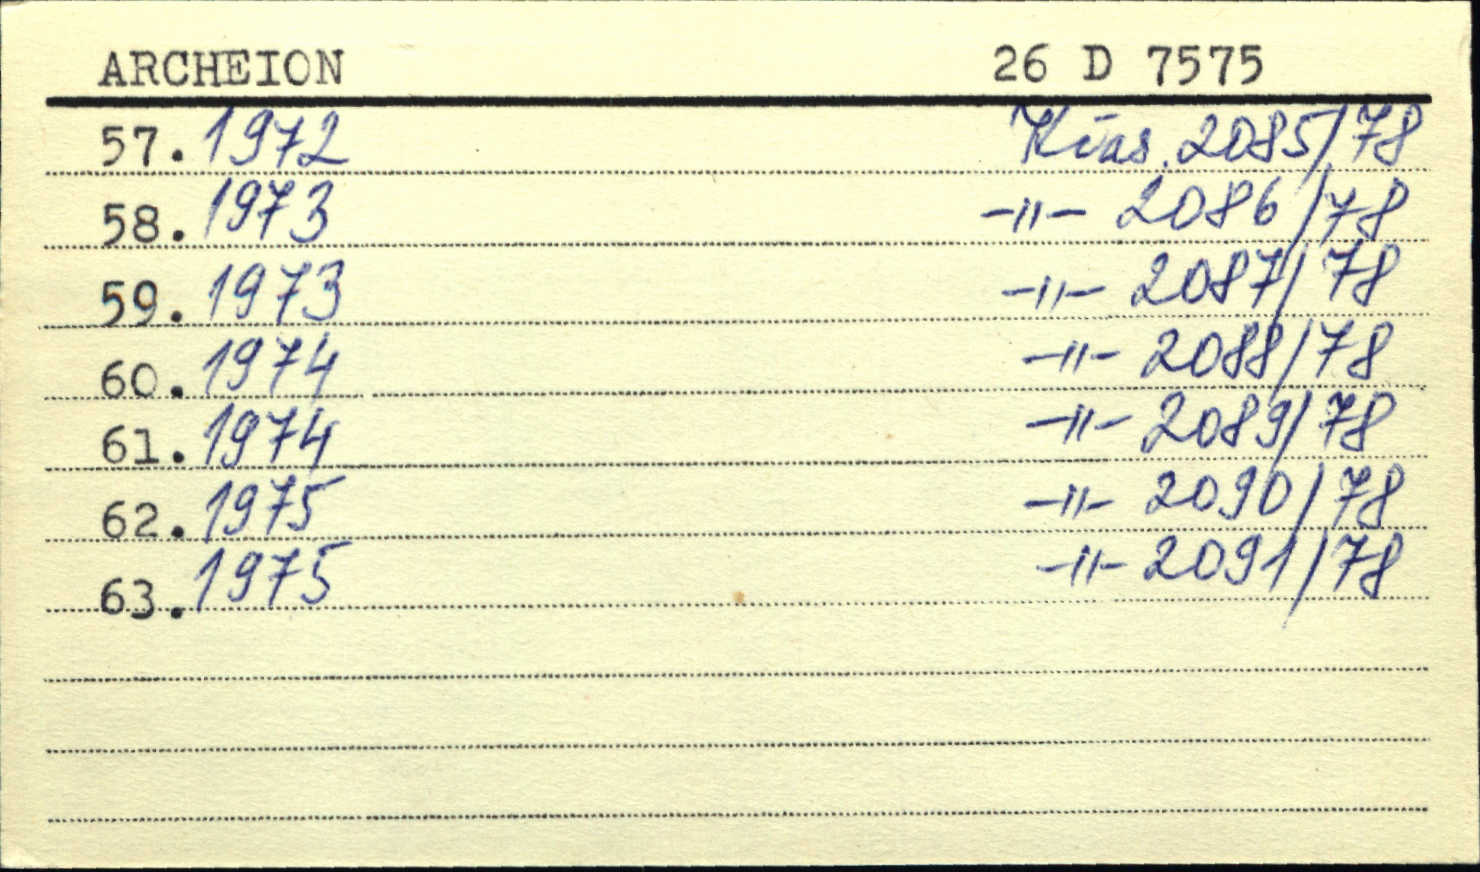 ARCHEION 26 D 7575
57. 1972 Kvas. 2085/78
58. 1973 -"- 2086/78
59. 1973 -"- 2087/78
60. 1974 -"- 2088/78
61. 1974 -"- 2089/78
62. 1975 -"- 2090/78
63. 1975 -"- 2091/78